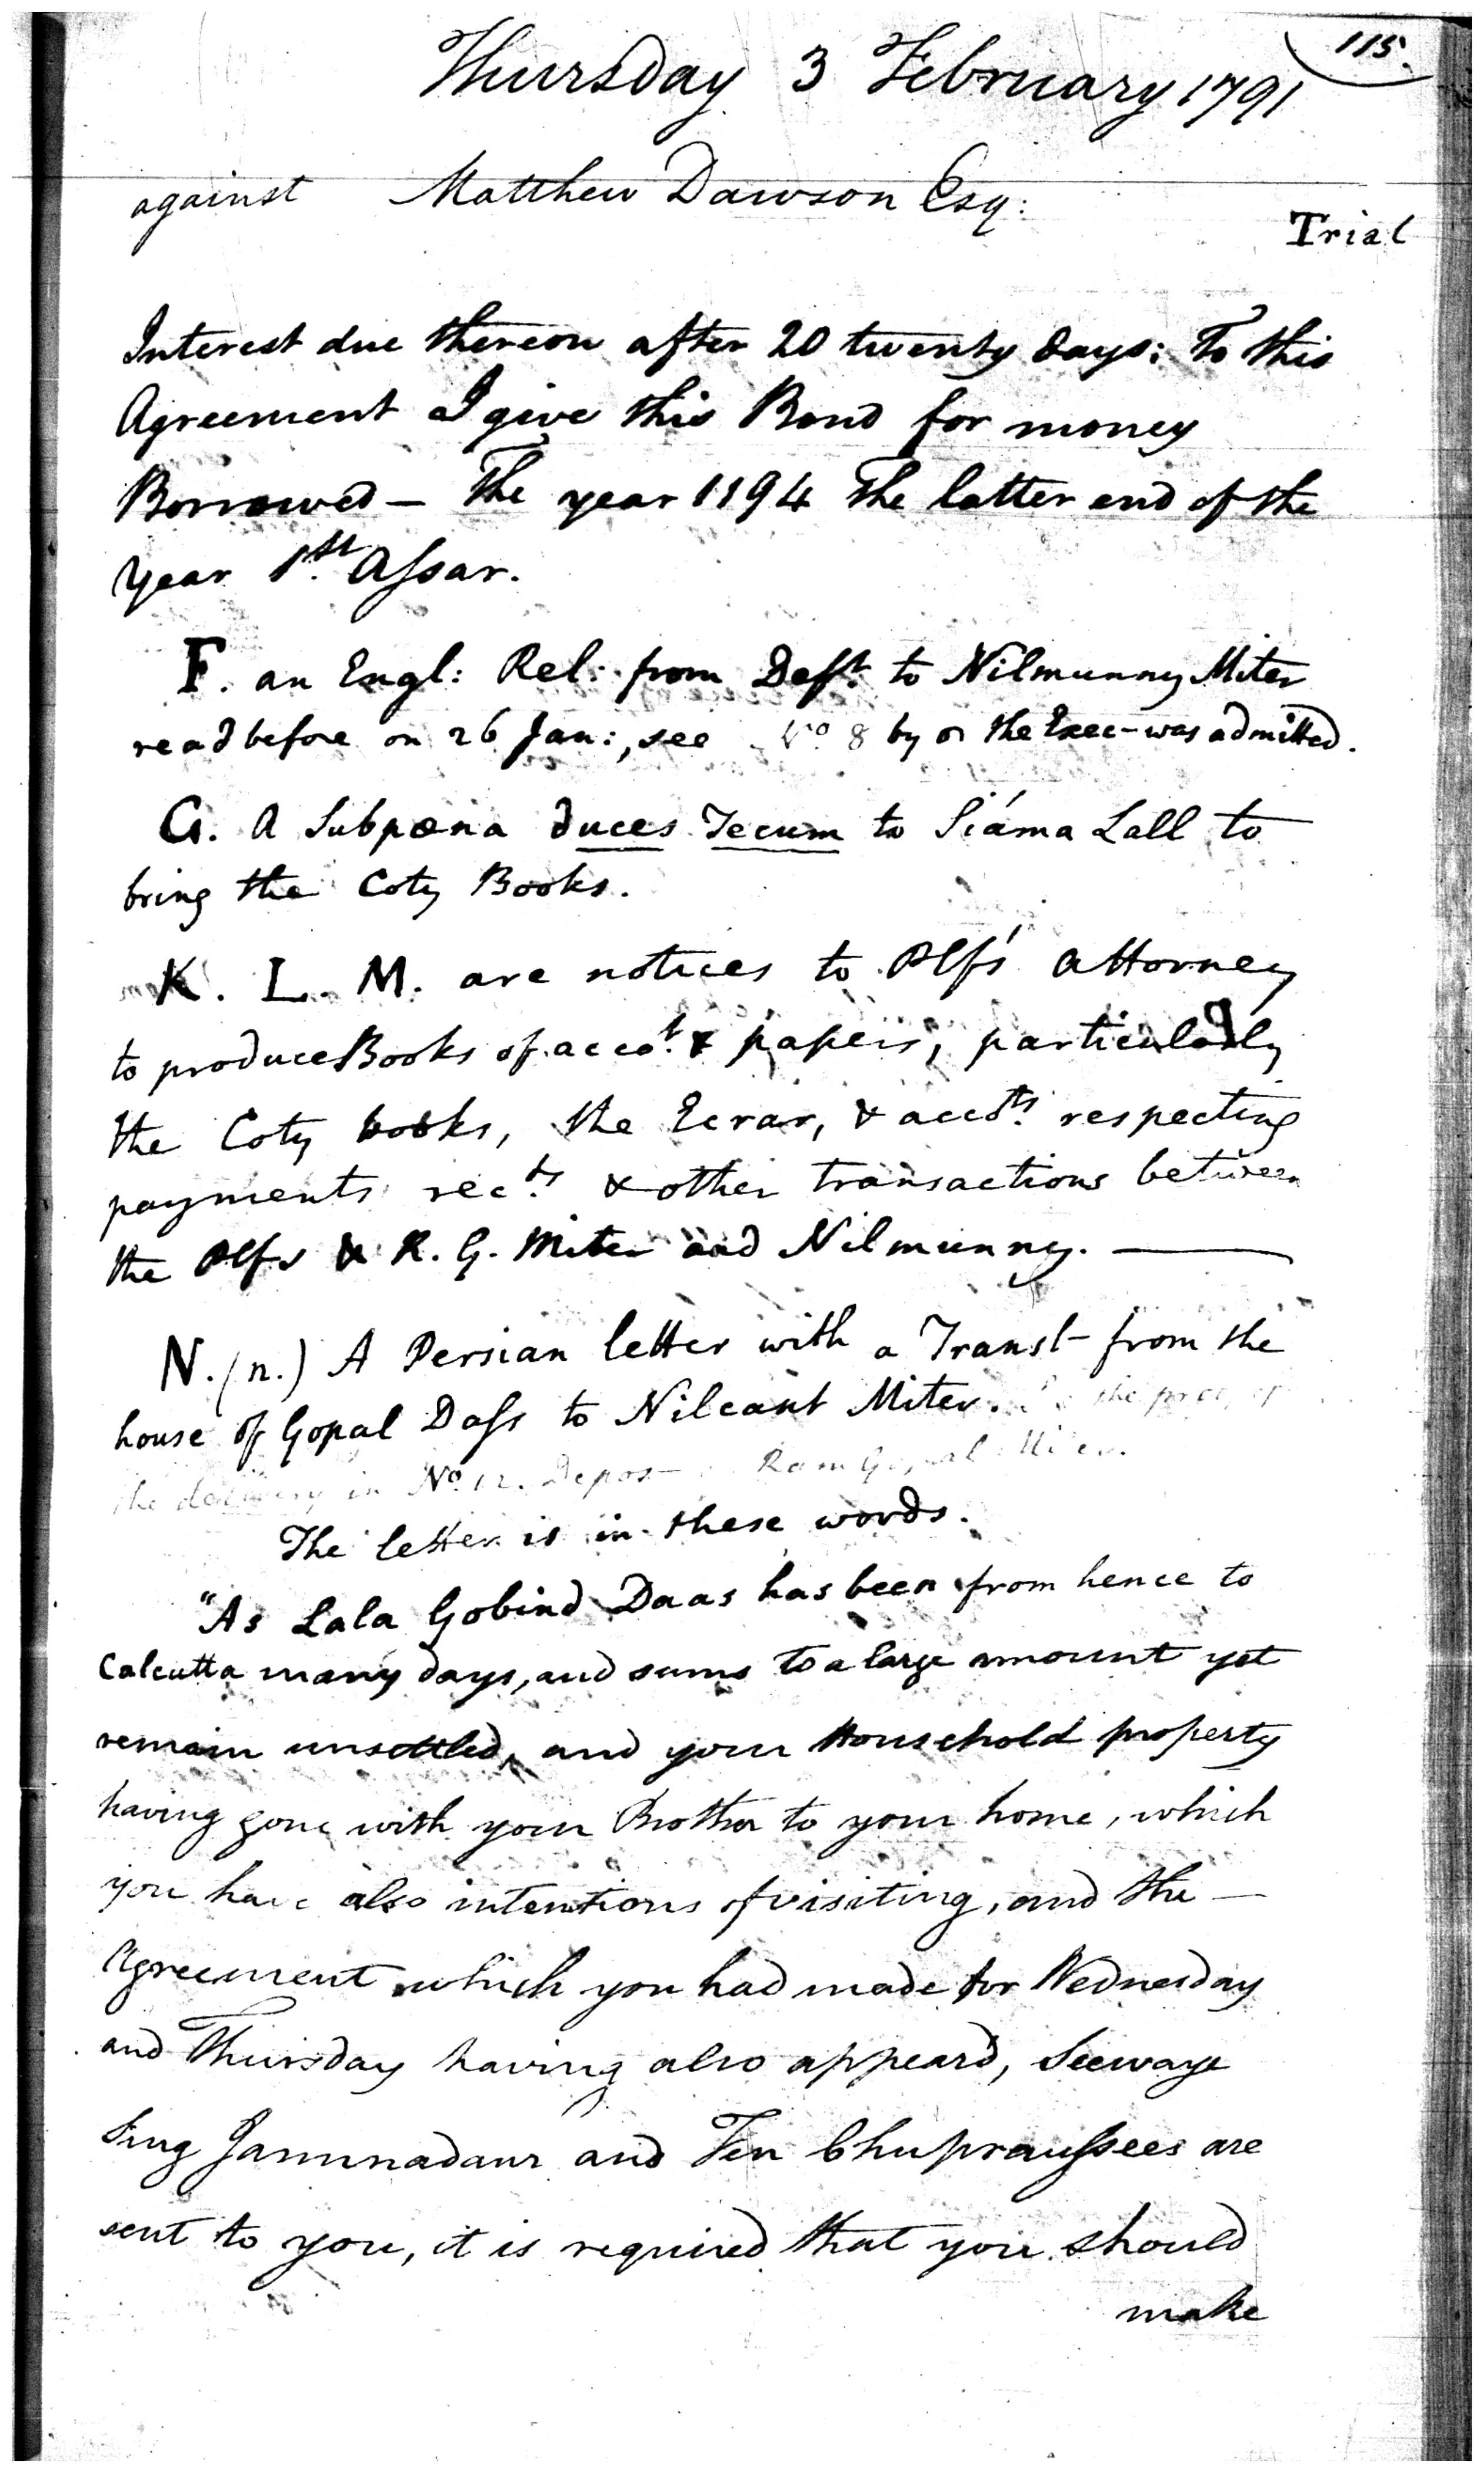 115.
Thursday 3 February 1791
against Matthew Dawson Esq:
Trial
Interest due thereon after 20 twenty days: To this
Agreement I give this Bond for money
Borrowed – The year 1194 The latter end of the
Year 1st. Assar.
F. an Engl: Rel: from Deft. to Nilmunny Miter
read before on 26 Jan:, see No 8 by the Exec– was admitted.
G. A Subpœna duces Tecum to Siáma Lall to
bring the Coty Books.
K. L. M. are notices to Plfs' Attorney
to produce Books of accot. & papers, particularly
the Coty books, the Ecrar, & accots. respecting
payments rects. & other transactions between
the Plfs & R. G. Miter and Nilmunny. —
N. (n.) A Persian letter with a Transl– from the
house of Gopal Dass to Nilcant Miter. the
the delivery in No. 12. Depos– Ram Gopal Miter.
The letter is in these words.
"As Lala Gobind Daas has been from hence to
Calcutta many days, and sums to a large amount yet
remain unsettled, and your Household property
having gone with your Brother to your home, which
you have also intentions of visiting, and the —
Agreement which you had made for Wednesday
and Thursday having also appeard, Seewage
Sing Jammadaur and Ten Chupraussees are
sent to you, it is required that you should
make